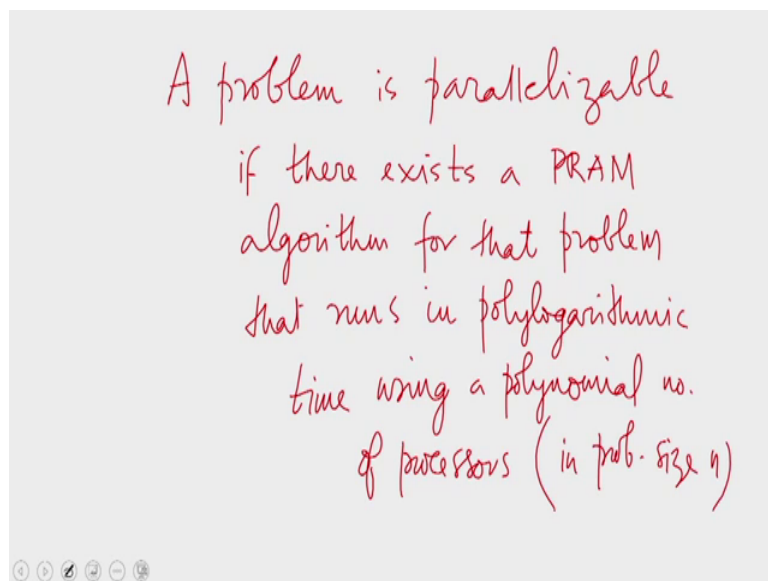 A problem is parallelizable
if there exists a PRAM
algorithm for that problem
that runs in polylogarithmic
time using a polynomial no.
of processors (in prob. size n)